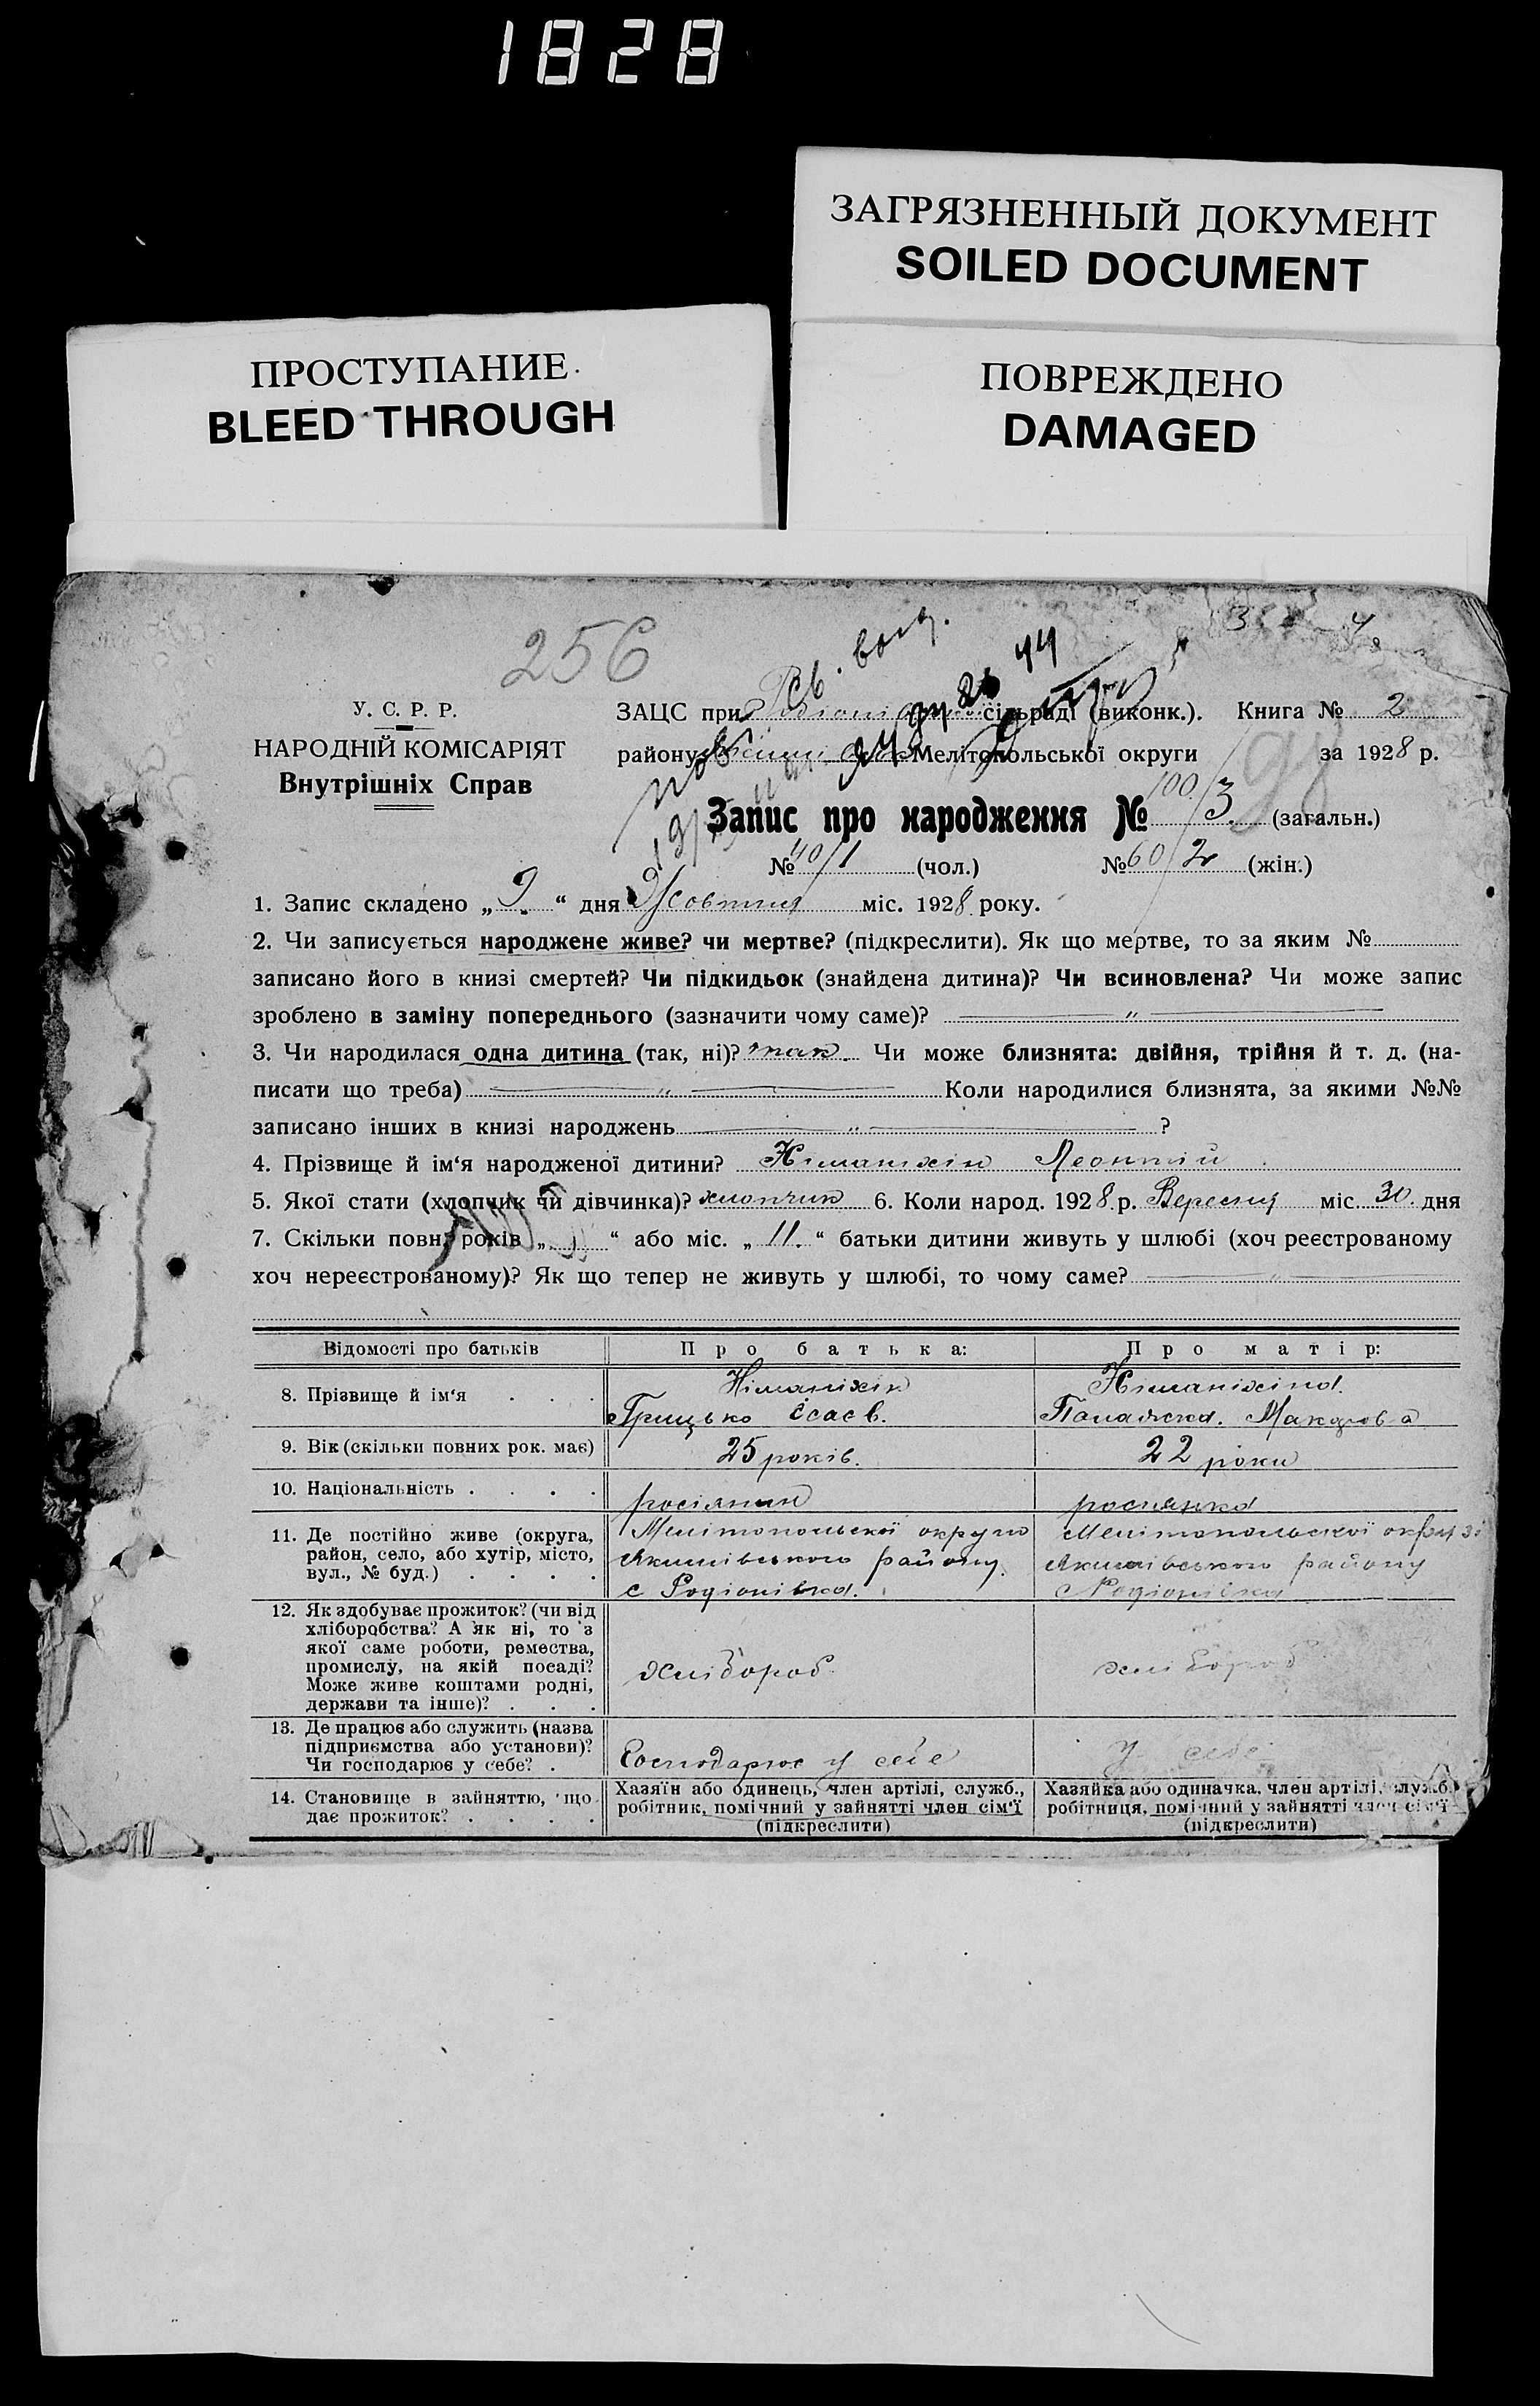 1828
ЗАГРЯЗНЕННЫЙ ДОКУМЕНТ
SOILED DOCUMENT
ПРОСТУПАНИЕ
BLEED THROUGH
ПОВРЕЖДЕНО
DAMAGED
256
У. С. Р. Р.
НАРОДНІЙ КОМІСАРІЯТ
Внутрішніх Справ
ЗАЦС при сільраді (виконк.). Книга № 2
району Мелітопольської округи за 1928 р.
98
Запис про народження № 100/3 (загальн.)
№ 40/1 (чол.) № 60/2 (жін.)
1. Запис складено „ 9 “ дня Жовтня міс. 1928 року.
2. Чи записується народжене живе? чи мертве? (підкреслити). Як що мертве, то за яким №
записано його в книзі смертей? Чи підкидьок (знайдена дитина)? Чи всиновлена? Чи може запис
зроблено в заміну попереднього (зазначити чому саме)? — „ —
3. Чи народилася одна дитина (так, ні)? так. Чи може близнята: двійня, трійня й т. д. (на-
писати що треба) — „ — Коли народилися близнята, за якими №№
записано інших в книзі народжень — „ — ?
4. Прізвище й ім‘я народженої дитини? Німаніхін Леонтій
5. Якої стати (хлопчик чи дівчинка)? хлопчик 6. Коли народ. 1928 р. Вересня міс. 30 дня
7. Скільки повн. років „ “ або міс. „ 11. “ батьки дитини живуть у шлюбі (хоч реєстрованому
хоч нереєстрованому)? Як що тепер не живуть у шлюбі, то чому саме? — „ —
Відомості про батьків Про батька: Про матір:
8. Прізвище й ім‘я . . . Німаніхін Німаніхіна.
Грицько Ісаєв. Панажка. Макарова
9. Вік (скільки повних рок. має) 25 років. 22 роки
10. Національність . . . . росіянин росіянка
11. Де постійно живе (округа,
район, село, або хутір, місто,
вул., № буд.) . . . .
Мелітопольскої округи
Якимівського району.
с Родіонівка.
Мелітопольскої округи
Якимівського району
с Родіонівка
12. Як здобуває прожиток? (чи від
хліборобства? А як ні, то з
якої саме роботи, ремества,
промислу, на якій посаді?
Може живе коштами родні,
держави та інше)? . . .
хлібороб.
хлібороб
13. Де працює або служить (назва
підприємства або установи)?
Чи господарює у себе? .
Господарює у себе
У себе
14. Становище в зайняттю, що
дає прожиток? . . . .
Хазяїн або одинець, член артілі, служб.,
робітник, помічний у зайнятті член сім‘ї
(підкреслити)
Хазяйка або одиначка, член артілі, служб.
робітниця, помічний у зайнятті член сім‘ї
(підкреслити)